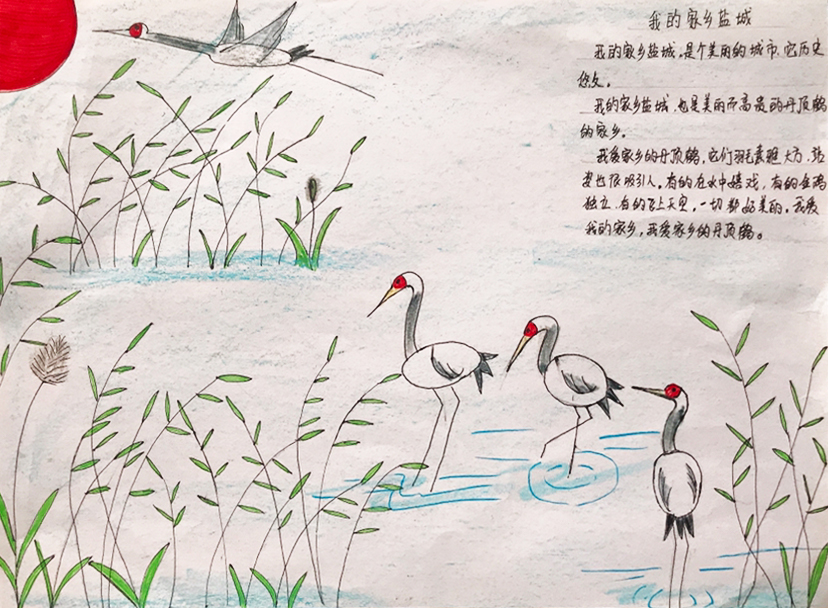 我的家乡盐城
我的家乡盐城，是个美丽的城市，它历史
悠久。
我的家乡盐城，也是美丽而高贵的丹顶鹤
的家乡。
我爱家乡的丹顶鹤，它们羽毛素雅大方，跳
也很吸引人。有的在水中嬉戏，有的金鸡
独立，有的飞上天空，一切都好美丽。我爱
我的家乡，我爱家乡的丹顶鹤。